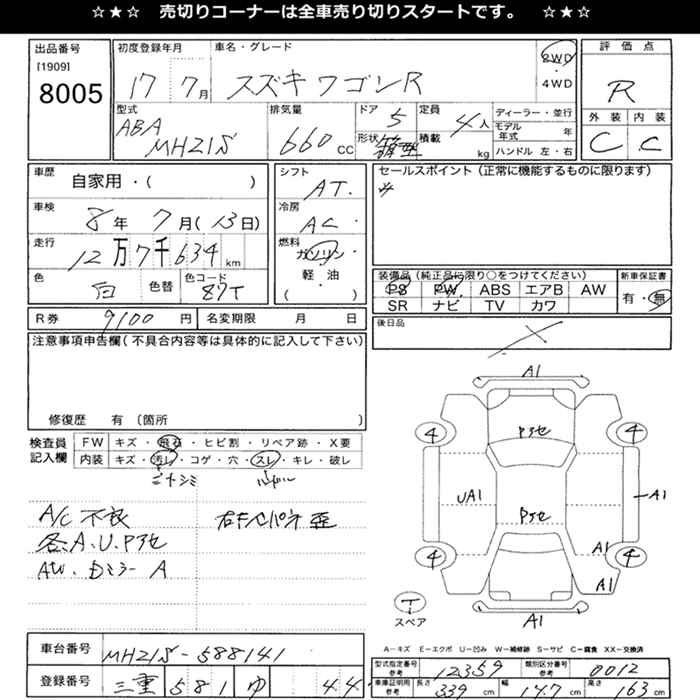 ☆★☆ 売切りコーナーは全車売り切りスタートです。 ☆★☆
出品番号
[1909]
8005
初度登録年月
17 7月
車名・グレード
スズキ ワゴンR
2WD
・
4WD
評価点
R
外装 内装
C C
型式
ABA
MH21S
排気量
660 CC
ドア 5
形状 箱型
定員 4人
積載 kg
ディーラー・並行
モデル年式 年
ハンドル 左・右
車歴
自家用・( )
車検
8年 7月(13日)
走行
12万7千634 km
色
白
色替
色コード
87T
シフト
AT.
冷房
AC.
燃料
ガソリン
軽・油
( )
セールスポイント(正常に機能するものに限ります)
装備品(純正品に限り○をつけてください)
PS PW ABS エアB AW
SR ナビ TV カワ
新車保証書
有・無
R券 9100円
名変期限 月 日
後日品
注意事項申告欄(不具合内容等は具体的に記入して下さい)
修復歴 有 〔箇所 〕
検査員
記入欄
FW キズ・飛石・ヒビ割・リペア跡・X要
内装 キズ・汚レ・コゲ・穴・スレ・キレ・破レ
A/C 不良
各.A.U.Pアセ
AW. Dミラー A
A1
4 4
Pアセ
UA1
A1
Pアセ
4 4
A1
A1
T
スペア
A1
A−キズ E−エクボ U−凹み W−補修跡 S−サビ C−腐食 XX−交換済
車台番号
MH21S-588141
登録番号
三重 581 ゆ 44
型式指定番号
参考
12359
類別区分番号
参考
0012
車庫証明用
参考
長さ 339 cm
幅 147 cm
高さ 163 cm